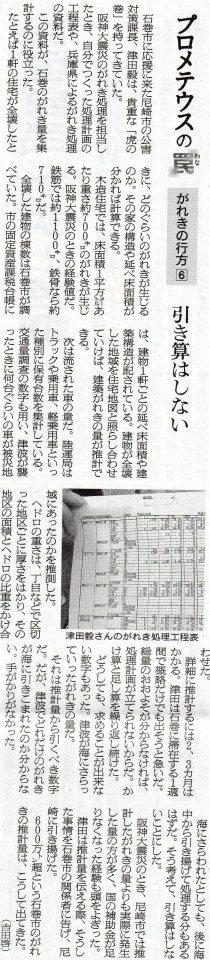 プロメテウスの罠
わな
がれきの行方⑥
引き算はしない
石巻市に応援に来た尼崎市の公害
対策課長、津田毅は、貴重な「虎の
巻」を持ってきていた。
阪神大震災のがれき処理を担当し
たとき、自分でつくった処理計画の
工程表や、兵庫県によるがれき処理
の資料だ。
この資料が、石巻のがれき量を集
計するのに役立った。
たとえば1軒の住宅が全壊したと
きに、どのぐらいのがれきが生じる
のか。その家の構造や延べ床面積が
分かれば計算できる。
木造住宅では、床面積1平方㍍あ
たり重さ700㌔のがれきが生じ
る。阪神大震災のときの経験値だ。
鉄筋では約1100㌔、鉄骨なら約
710㌔だ。
全壊した建物の棟数は石巻市が調
べていた。市の固定資産課税台帳に
は、建物1軒ごとの延べ床面積や建
築構造が記されている。建物が全壊
した地域を住宅地図と照らし合わせ
ていけば、建築がれきの量が推計で
きる。
次は流された車の量だ。陸運局は
トラックや乗用車、軽乗用車といっ
た種別に保有台数を集計している。
交通量調査の数字も用い、津波が襲
ったときに何台ぐらいの車が被災地
域にあったのかを推測した。
ヘドロの重さは、丁目などで区切
った地区ごとに厚さをはかり、その
地区の面積とヘドロの比重をかけ合
わせた。
津田毅さんのがれき処理工程表
詳細に推計するには2、3カ月は
かかる。津田は石巻に滞在する1週
間で概略だけでも出そうと急いだ。
総量のおおよそが分からなければ、
処理計画が立てられないからだ。か
け算と足し算を繰り返し続けた。
どうしても、求めることが出来な
い数字もあった。津波が海にさらっ
ていったがれきの量だ。
それは推計量から引くべき数字
だ。だが、津波でどれだけのがれき
が海に引きこまれたのか分からな
い。手がかりがなかった。
海にさらわれたとしても、後に海
中から引き揚げて処理する分もある
はずだ。そう考えて、引き算はしな
いことにした。
阪神大震災のとき、尼崎市では推
計したがれきの量よりも実際に発生
した量の方が多く、国の補助金が足
りなくなった経験も頭をよぎった。
津田は推計量を伝える際、そうし
た事情を石巻市の関係者に告げ、尼
崎に引き揚げた。
600万㌧超という石巻市のがれ
きの推計量は、こうして出てきた。
(吉田啓)